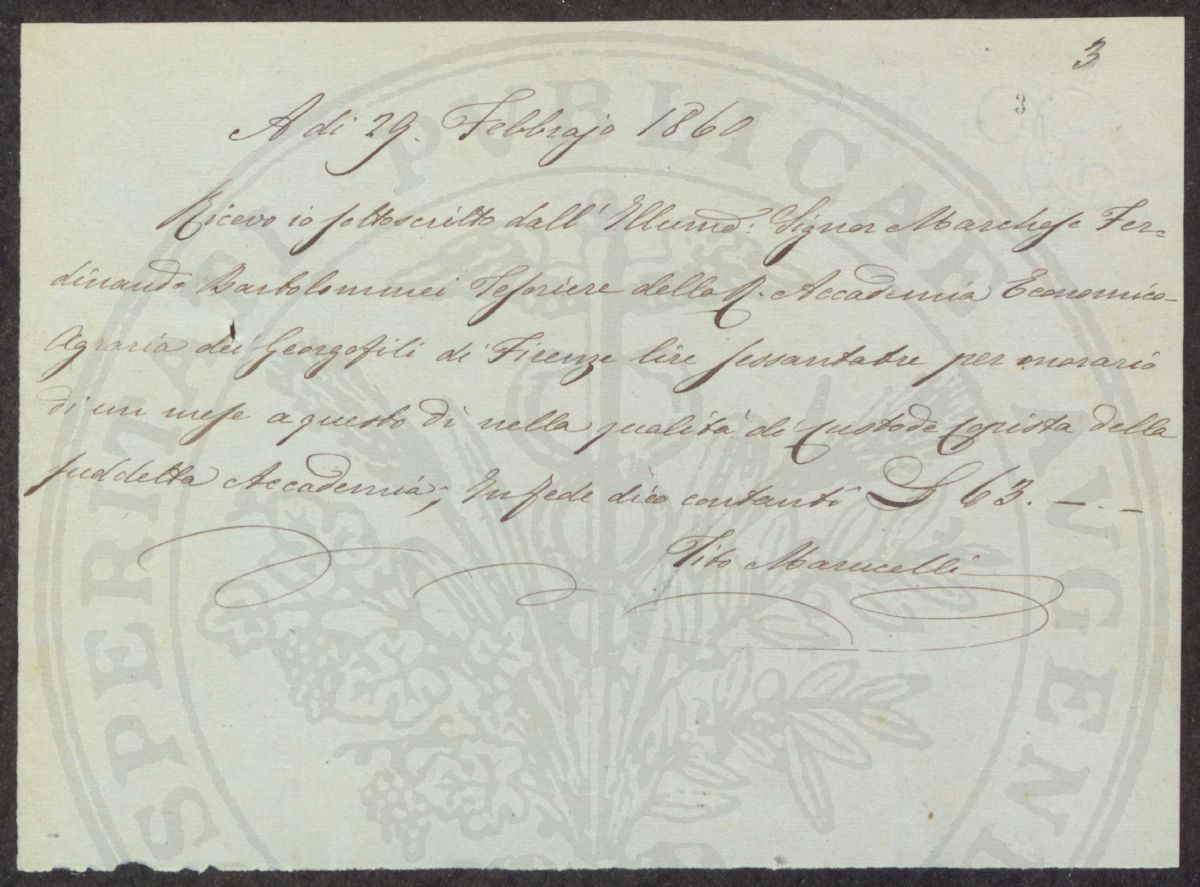 3
3
A di 29. Febbrajo 1860
Ricevo io sottoscritto dall' Illumo: Signor Marchese Fer=
dinando Bartolommei Tesoriere della R. Accademia Economico-
Agraria dei Georgofili di Firenze lire sessantatre per onorario
di un mese a questo dì nella qualità di Custode Copista della
suddetta Accademia; In fede dico contanti £ 63. —.—
Tito Marucelli
PROSPERITATI PUBLICAE AUGEN